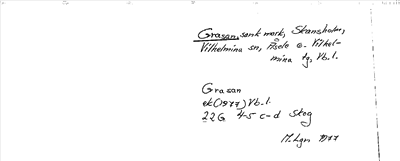 Grasan, sank mark, Skansholm,
Vilhelmina sn, Åsele o. Vilhel-
mina tg, Vb. l.
Grasan
ek (1977) Vb. l.
22G 4-5 c-d Skog
M. Lgn 1977